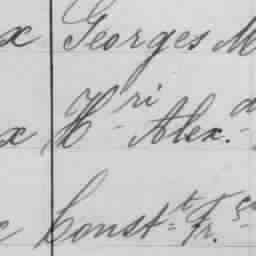 x Georges M
x H-ri Alex.-
Const-t Fr.-